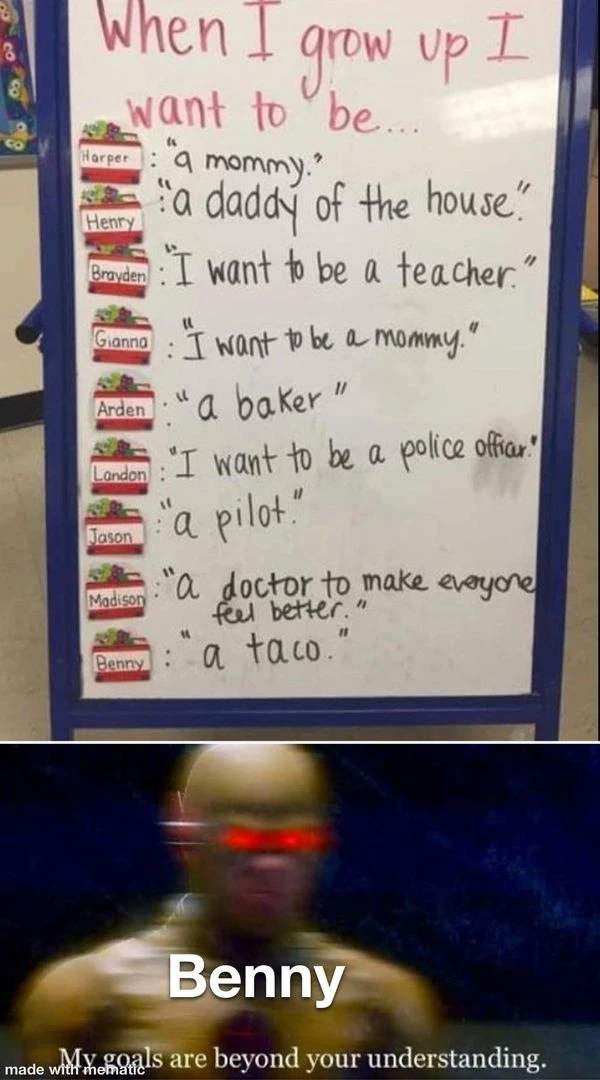 When I grow up I
want to be...
Harper : "a mommy."
Henry : "a daddy of the house."
Brayden : "I want to be a teacher."
Gianna : "I want to be a mommy."
Arden : "a baker"
Landon : "I want to be a police officar."
Jason : "a pilot."
Madison : "a doctor to make everyone
feel better."
Benny : "a taco."
Benny
My goals are beyond your understanding.
made with mematic